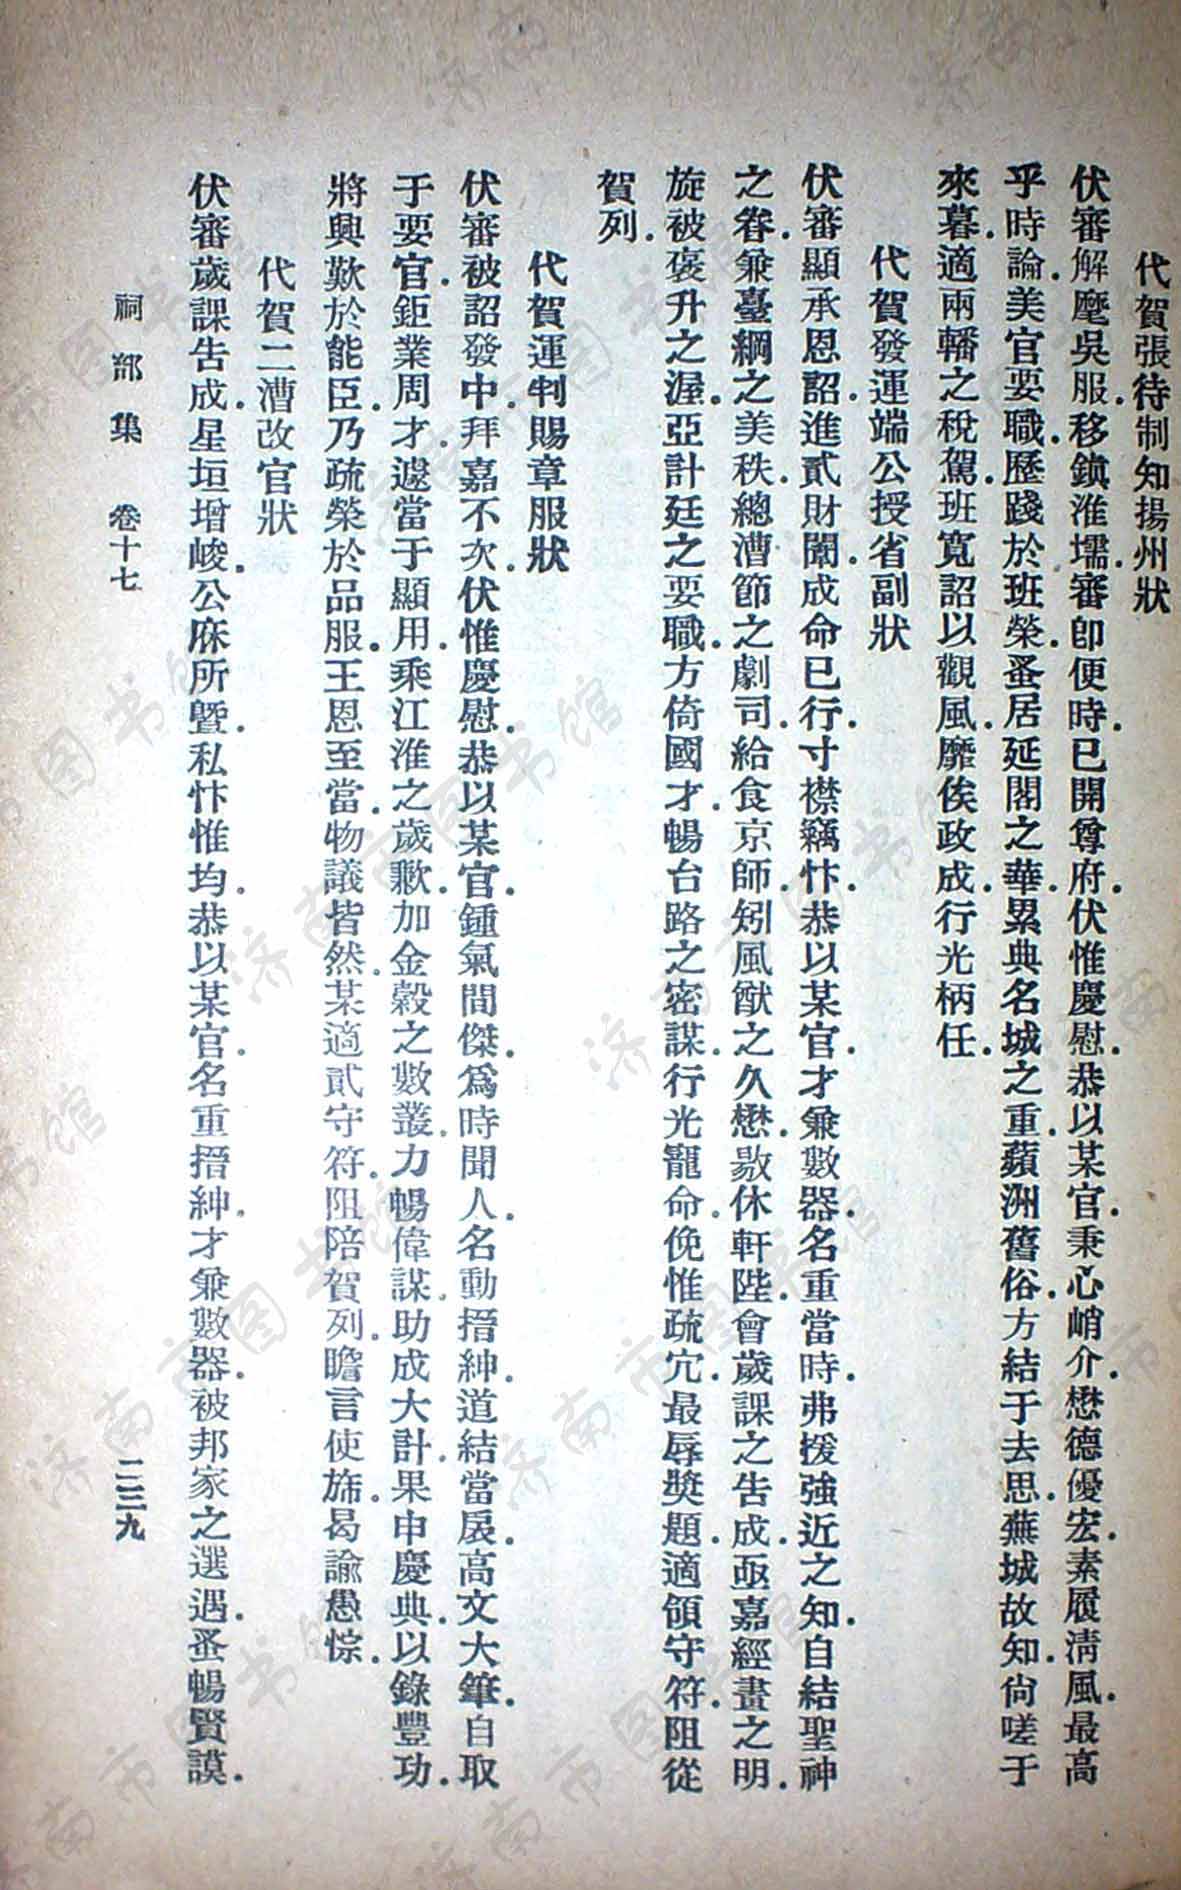 代賀張待制知揚州狀
伏審解麾吳服．移鎮淮壖．審卽便時．已開尊府．伏惟慶慰．恭以某官．秉心峭介．懋德優宏．素履淸風．最高
乎時論．美官要職．歷踐於班榮．蚤居延閣之華．累典名城之重．蘋洲舊俗．方結于去思．蕪城故知．尙嗟于
來暮．適兩轓之稅駕．班寬詔以觀風．靡俟政成．行光柄任．
代賀發運端公授省副狀
伏審顯承恩詔．進貳財闈．成命已行．寸襟竊忭．恭以某官．才兼數器．名重當時．弗援強近之知．自結聖神
之眷．兼臺綱之美秩．總漕節之劇司．給食京師．矧風猷之久懋．敭休軒陛．會歲課之告成．亟嘉經畫之明．
旋被褒升之渥．亞計廷之要職．方倚國才．暢台路之密謀．行光寵命．俛惟疏冗．最辱獎題．適領守符．阻從
賀列．
代賀運判賜章服狀
伏審被詔發中．拜嘉不次．伏惟慶慰．恭以某官．鍾氣間傑．爲時聞人．名動搢紳．道結當扆．高文大筆．自取
于要官．鉅業周才．遽當于顯用．乘江淮之歲歉．加金穀之數叢．力暢偉謀．助成大計．果申慶典．以錄豐功．
將興歎於能臣．乃疏榮於品服．王恩至當．物議皆然．某適貳守符．阻陪賀列．瞻言使旆．曷諭愚悰．
代賀二漕改官狀
伏審歲課告成．星垣增峻．公庥所曁．私忭惟均．恭以某官．名重搢紳．才兼數器．被邦家之選遇．蚤暢賢謨．
祠部集　卷十七
二三九